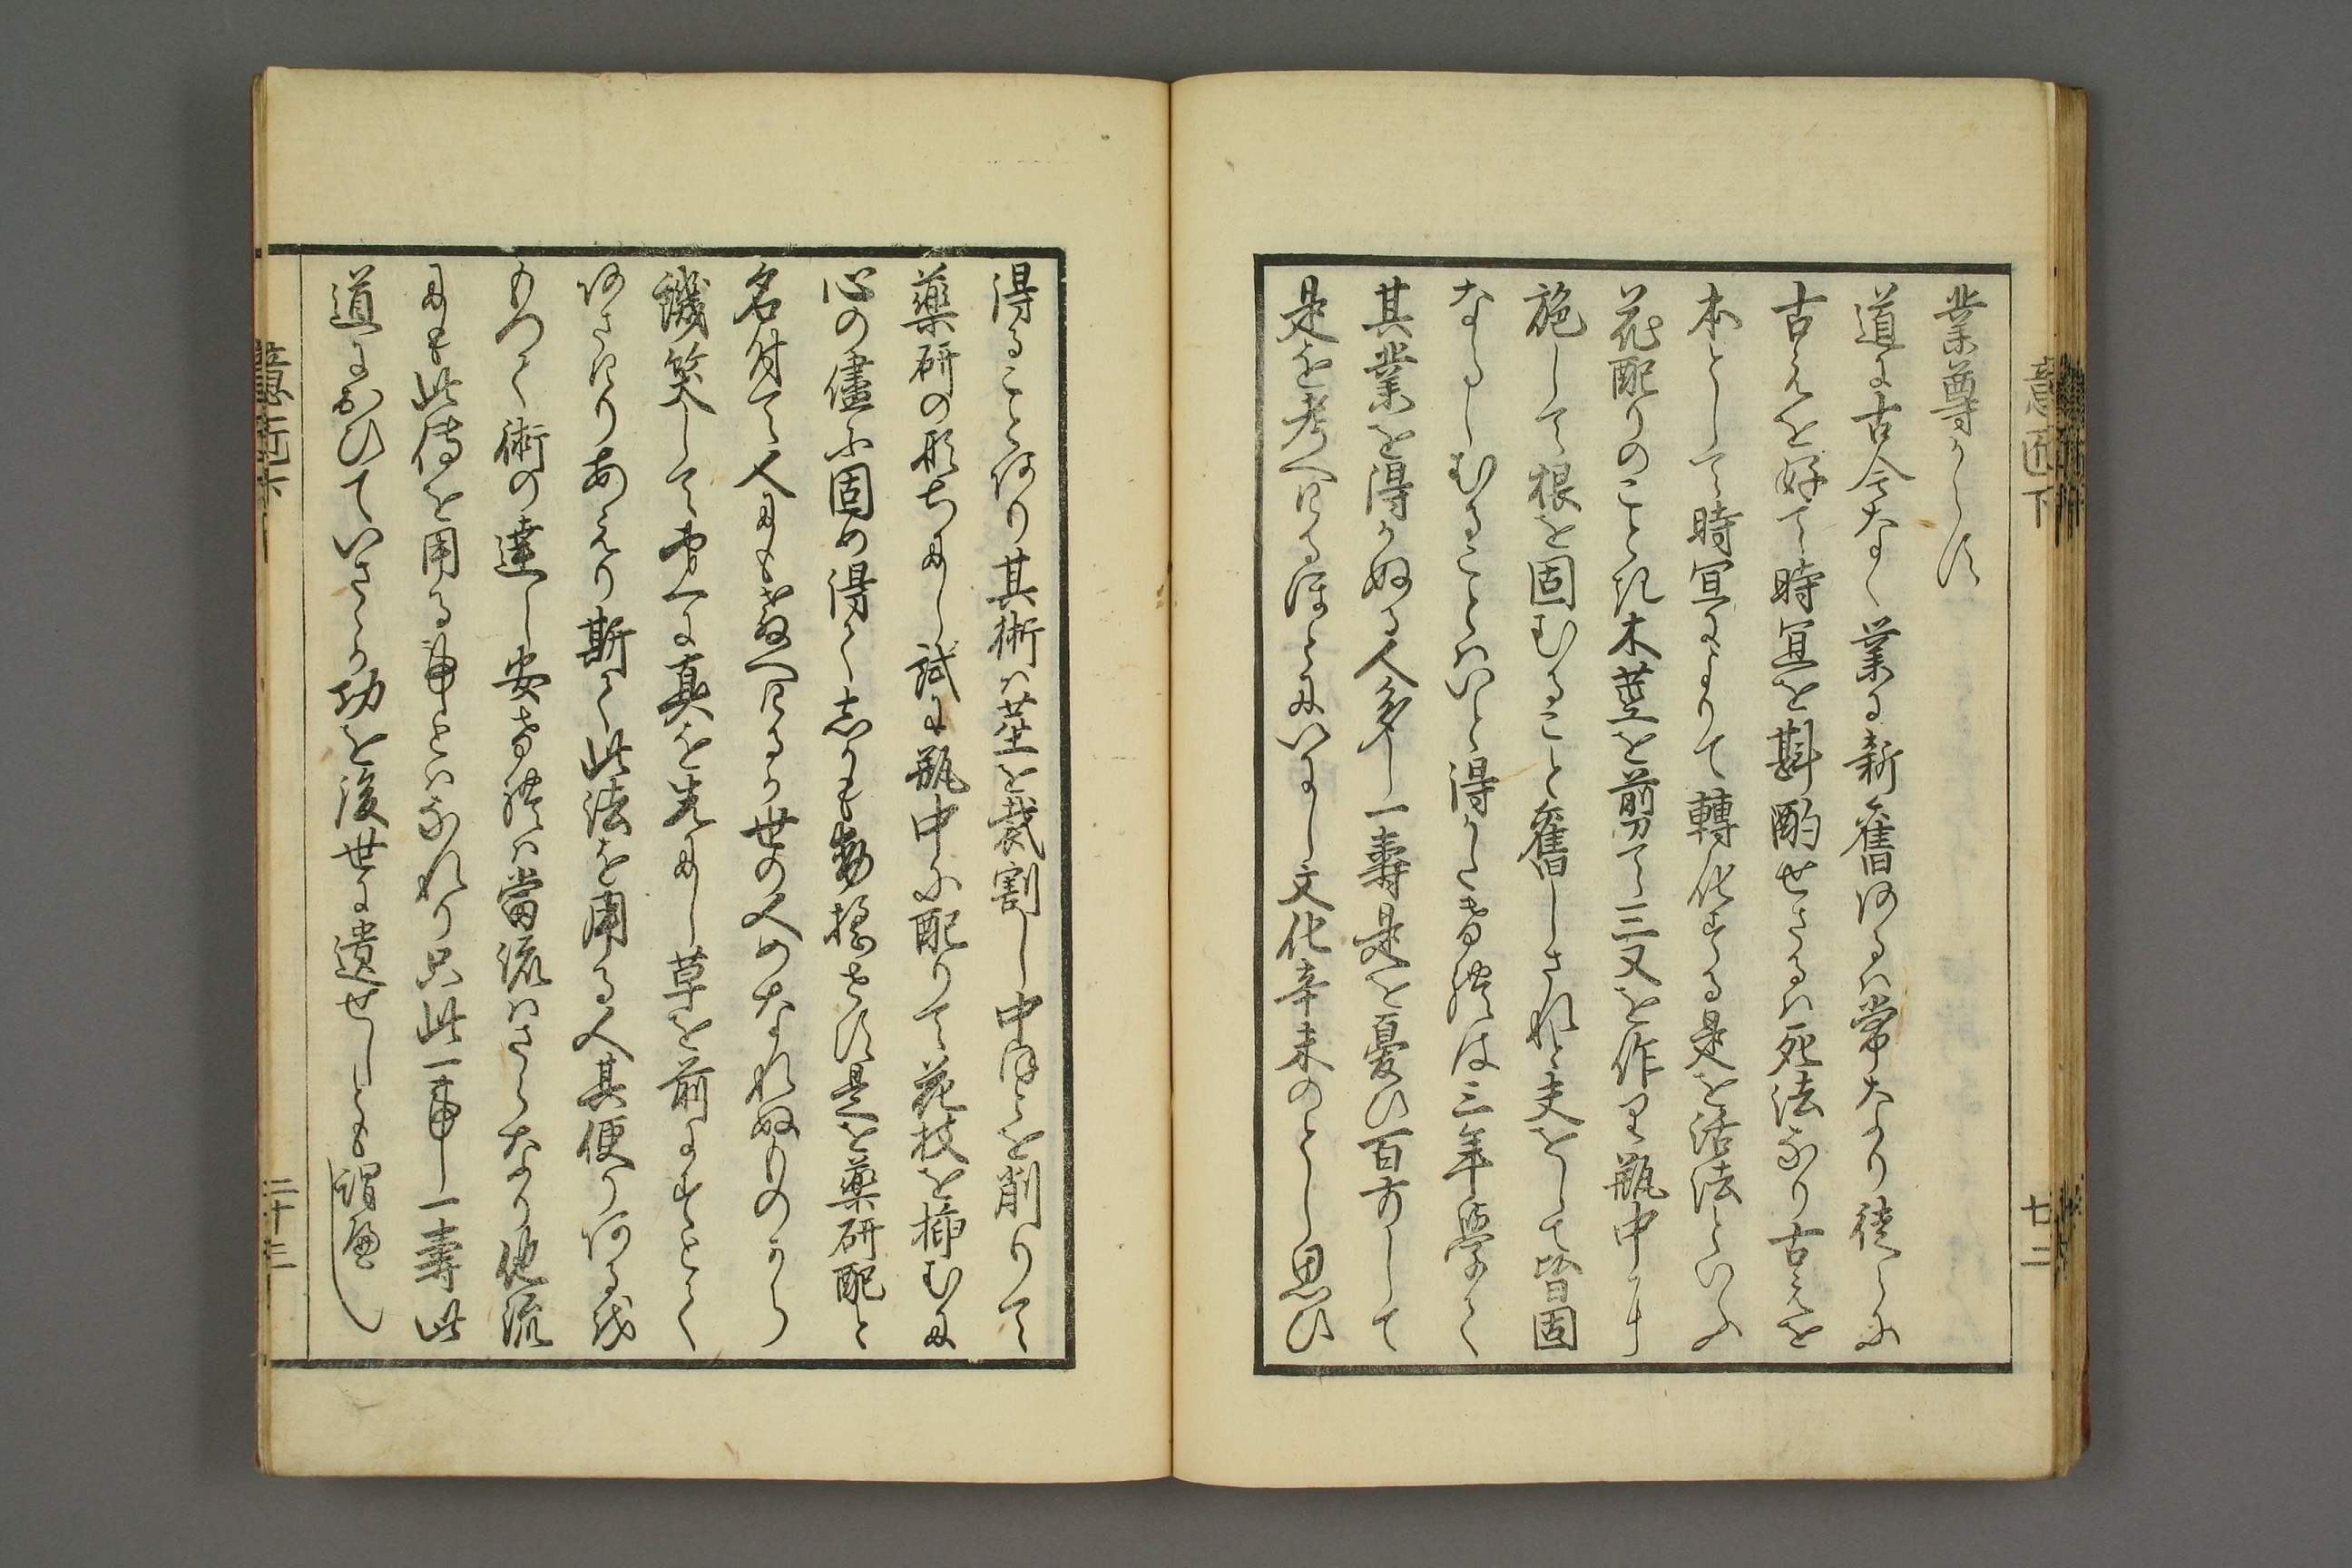 業尊からす
道に古今なく業に新舊あるハ常なり徒らに
古えを好て時宜を斟酌せさるハ死法なり古えを
本として時宜によりて轉化する是を活法といふ
花配りのこと木葉を剪て三又を作り瓶中に
施して根を固むること舊しされと夫をして皆固
ならしむることハいと得かたき様は三年學て
其業を得かぬる人多し一壽是を憂ひ百方して
是を考へけるほとにいにし文化辛未のとし思ひ
得ることあり其術ハ莖を裁割し中ほとを削りて
藥研の形ちにし試に瓶中に配りて花枝を挿むに
心の儘に固め得て志かも動揺せす是を藥研配と
名付て人にも教へけるか世の人のなれぬものから
譏笑して専らに真を先にし草を前にすとて
あさけりあえり斯て此法を用る人其便りあるを
もつて術の達し安き様ハ當流ハさらなり他流
にも此傳を用る事とハなれり只此一事し一壽此
道におひていさゝか功を後世に遺せしとも謂へし
意匠下
廿二
二十三